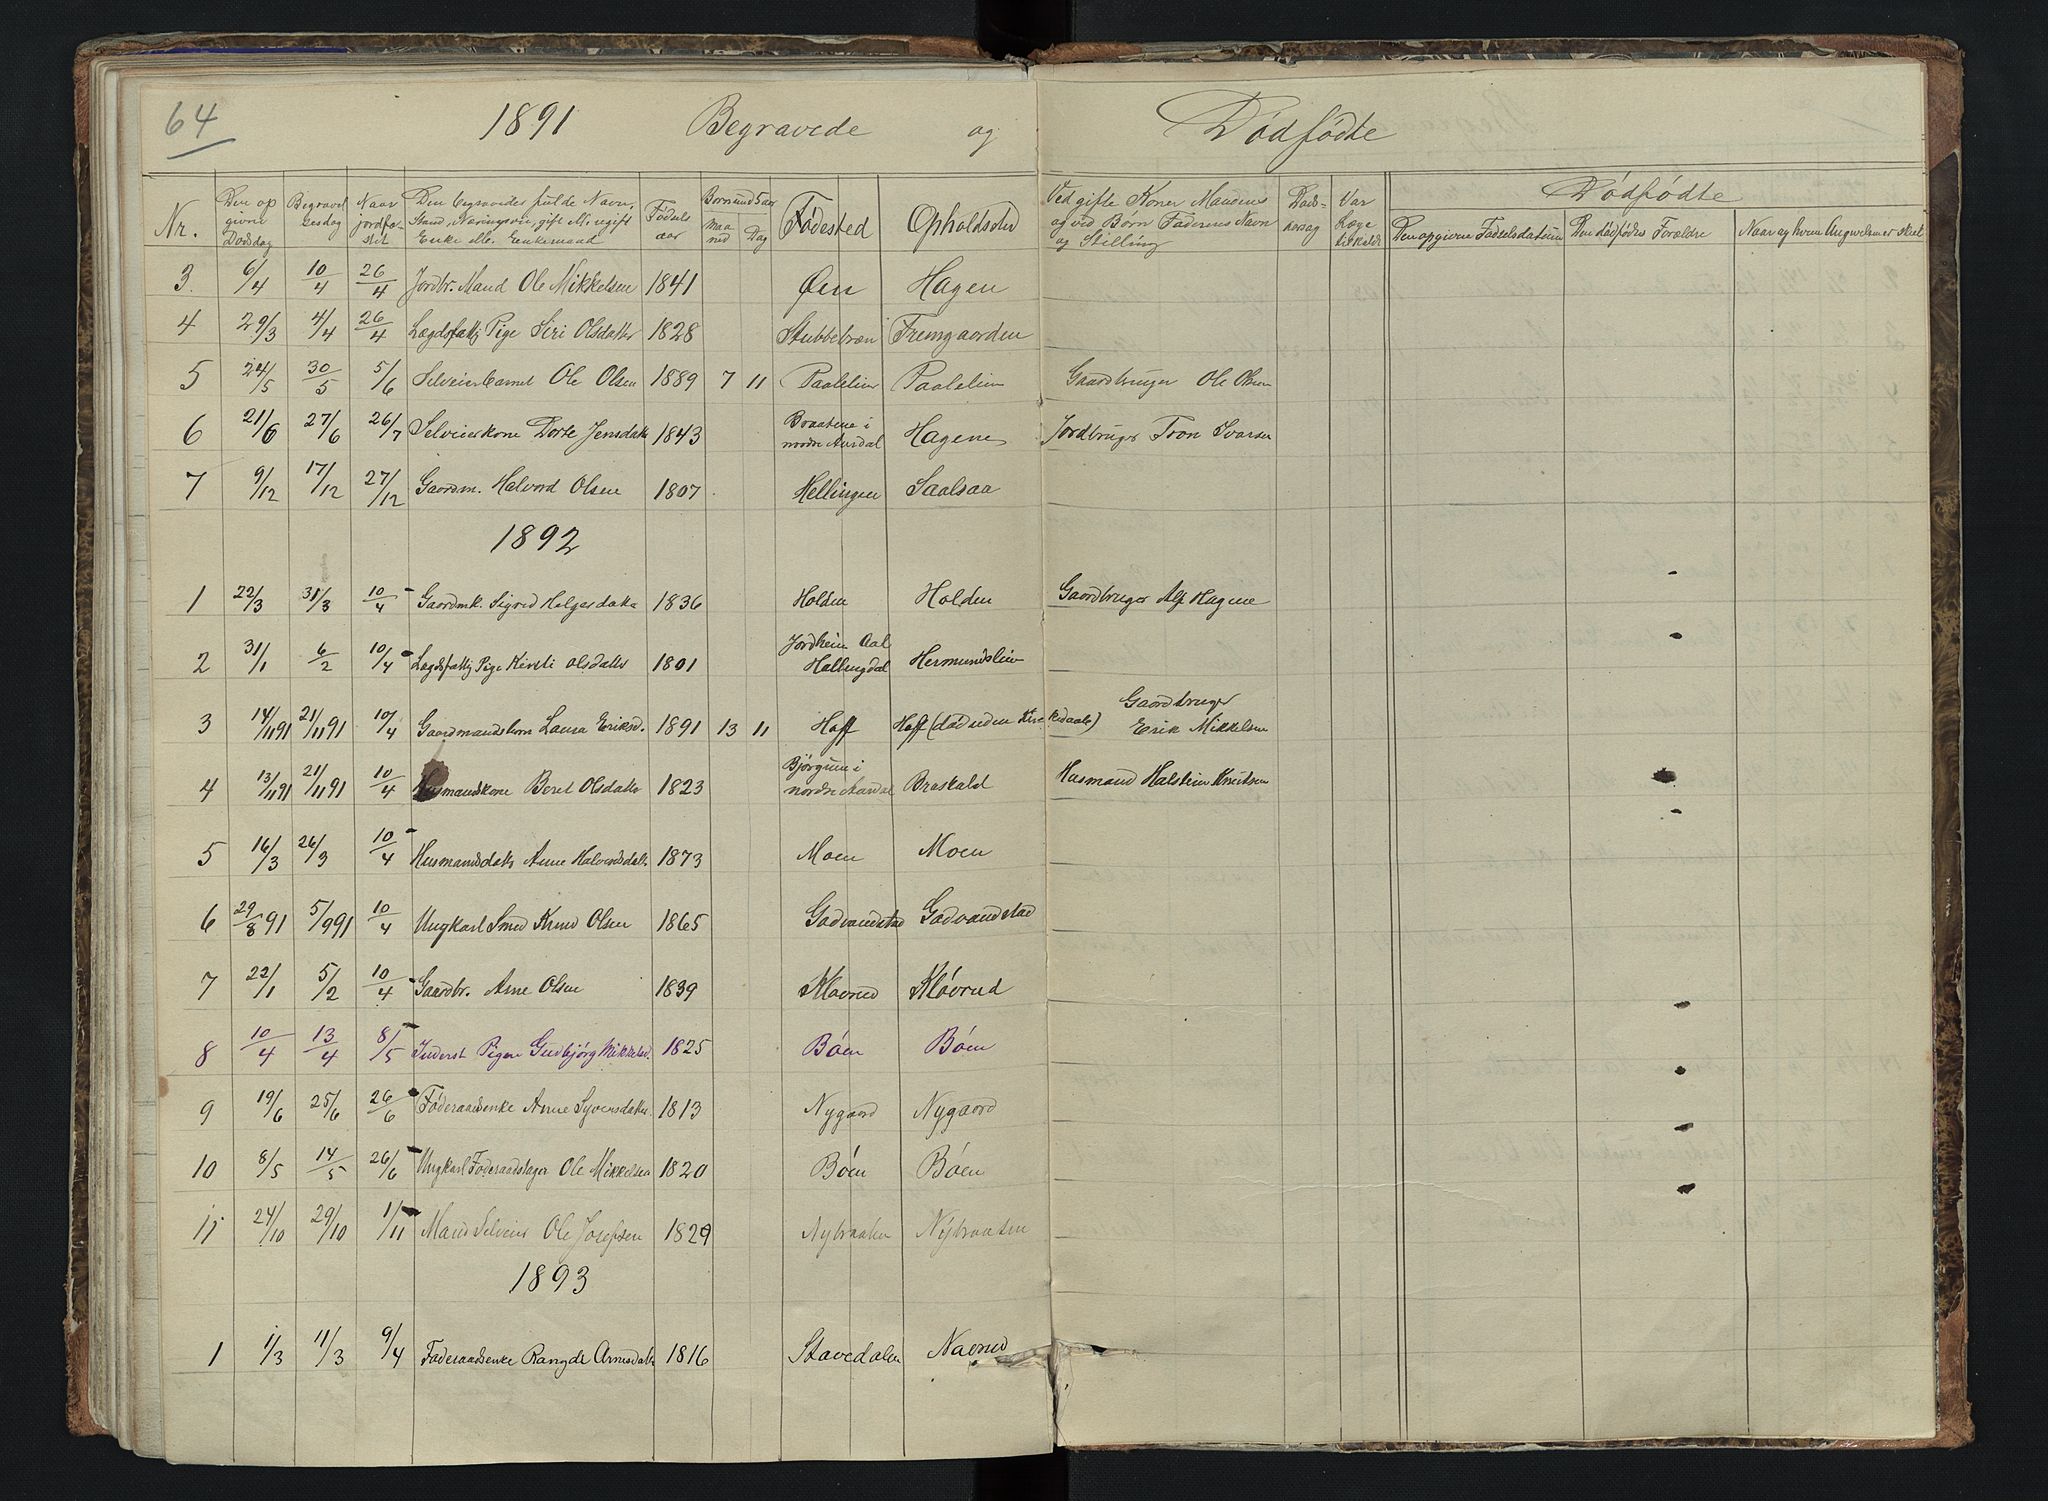 64
1891 Begravede og Dødfødte
Nr. Den op givne Dødsdag Begravel sesdag Naar jordfæ stet Den Begravedes fulde Navn, Stand, Næringsvei, gift ell. ugift Enke ell. Enkemand Fødsels aar Børn und 5 aar Maa ned Dag Fødested Opholdssted Ved gifte Koner Mandens og ved Børn Faderens Navn og Stilling Døds- aarsag Var Læge tilkaldt Dødfødte Den opgivne Fødselsdatum Den dødfødtes Forældre Naar og hvem Angivelsen er skeet
3. 6/4 10/4 26/4 Jordbr. Mand Ole Mikkelsen 1841 Øen Hagen
4 29/3 4/4 26/4 Lægdsfattig Pige Siri Olsdatter 1828 Stubbebræn Fremgaarden
5 24/5 30/5 5/6 Selveierbarnet Ole Olsen 1889 7 11 Paalelien Paalelien Gaardbruger Ole Olsen
6 21/6 27/6 26/7 Selveierkone Dorte Jensdatter 1843 Braatene i nordre Aurdal Hagene Jordbruger Tron Ivarsen
7 9/12 17/12 27/12 Gaardm. Halvord Olsen 1807 Hellingen Saalsaa
1892
1 22/3 31/3 10/4 Gaardmk. Sigrid Helgesdatter 1836 Holden Holden Gaardbruger Alf Hagene
2 31/1 6/2 10/4 Lægdsfattig Pige Kirsti Olsdatter 1801 Jordheim Aal Hallingdal Hermundslien
3 14/11 91 21/11 91 10/4 Gaardmandsbarn Laura Eriksd. 1891 13 11 Hoff Hoff (død uden Kirkedaab) Gaardbruger Erik Mikkelsen
4 13/11 91 21/11 91 10/4 Husmandskone Beret Olsdatter 1823 Bjørgum i nordre Aurdal Braskald Husmand Halstein Knutsen
5 16/3 26/3 10/4 Husmandsdatter Anne Halvorsdatter 1873 Moen Moen
6 29/8 91 5/9 91 10/4 Ungkarl Smed Knud Olsen 1865 Gadvandstad Gadvandstad
7 22/1 5/2 10/4 Gaardbr. Arne Olsen 1839 Kløvrud Kløvrud
8 10/4 13/4 8/5 Inderst Pigen Gudbjørg Mikkelsd. 1825 Bøen Bøen
9 19/6 25/6 26/6 Føderaadsenke Anne Syversdatter 1813 Nygaard Nygaard
10 8/5 14/5 26/6 Ungkarl Føderaadstager Ole Mikkelsen 1820 Bøen Bøen
11 24/10 29/10 1/11 Mand Selveier Ole Josefsen 1829 Nybraaten Nybraaten
1893
1 1/3 11/3 9/4 Føderaadsenke Rangdi Arnesdatter 1816 Stavedalen Navrud